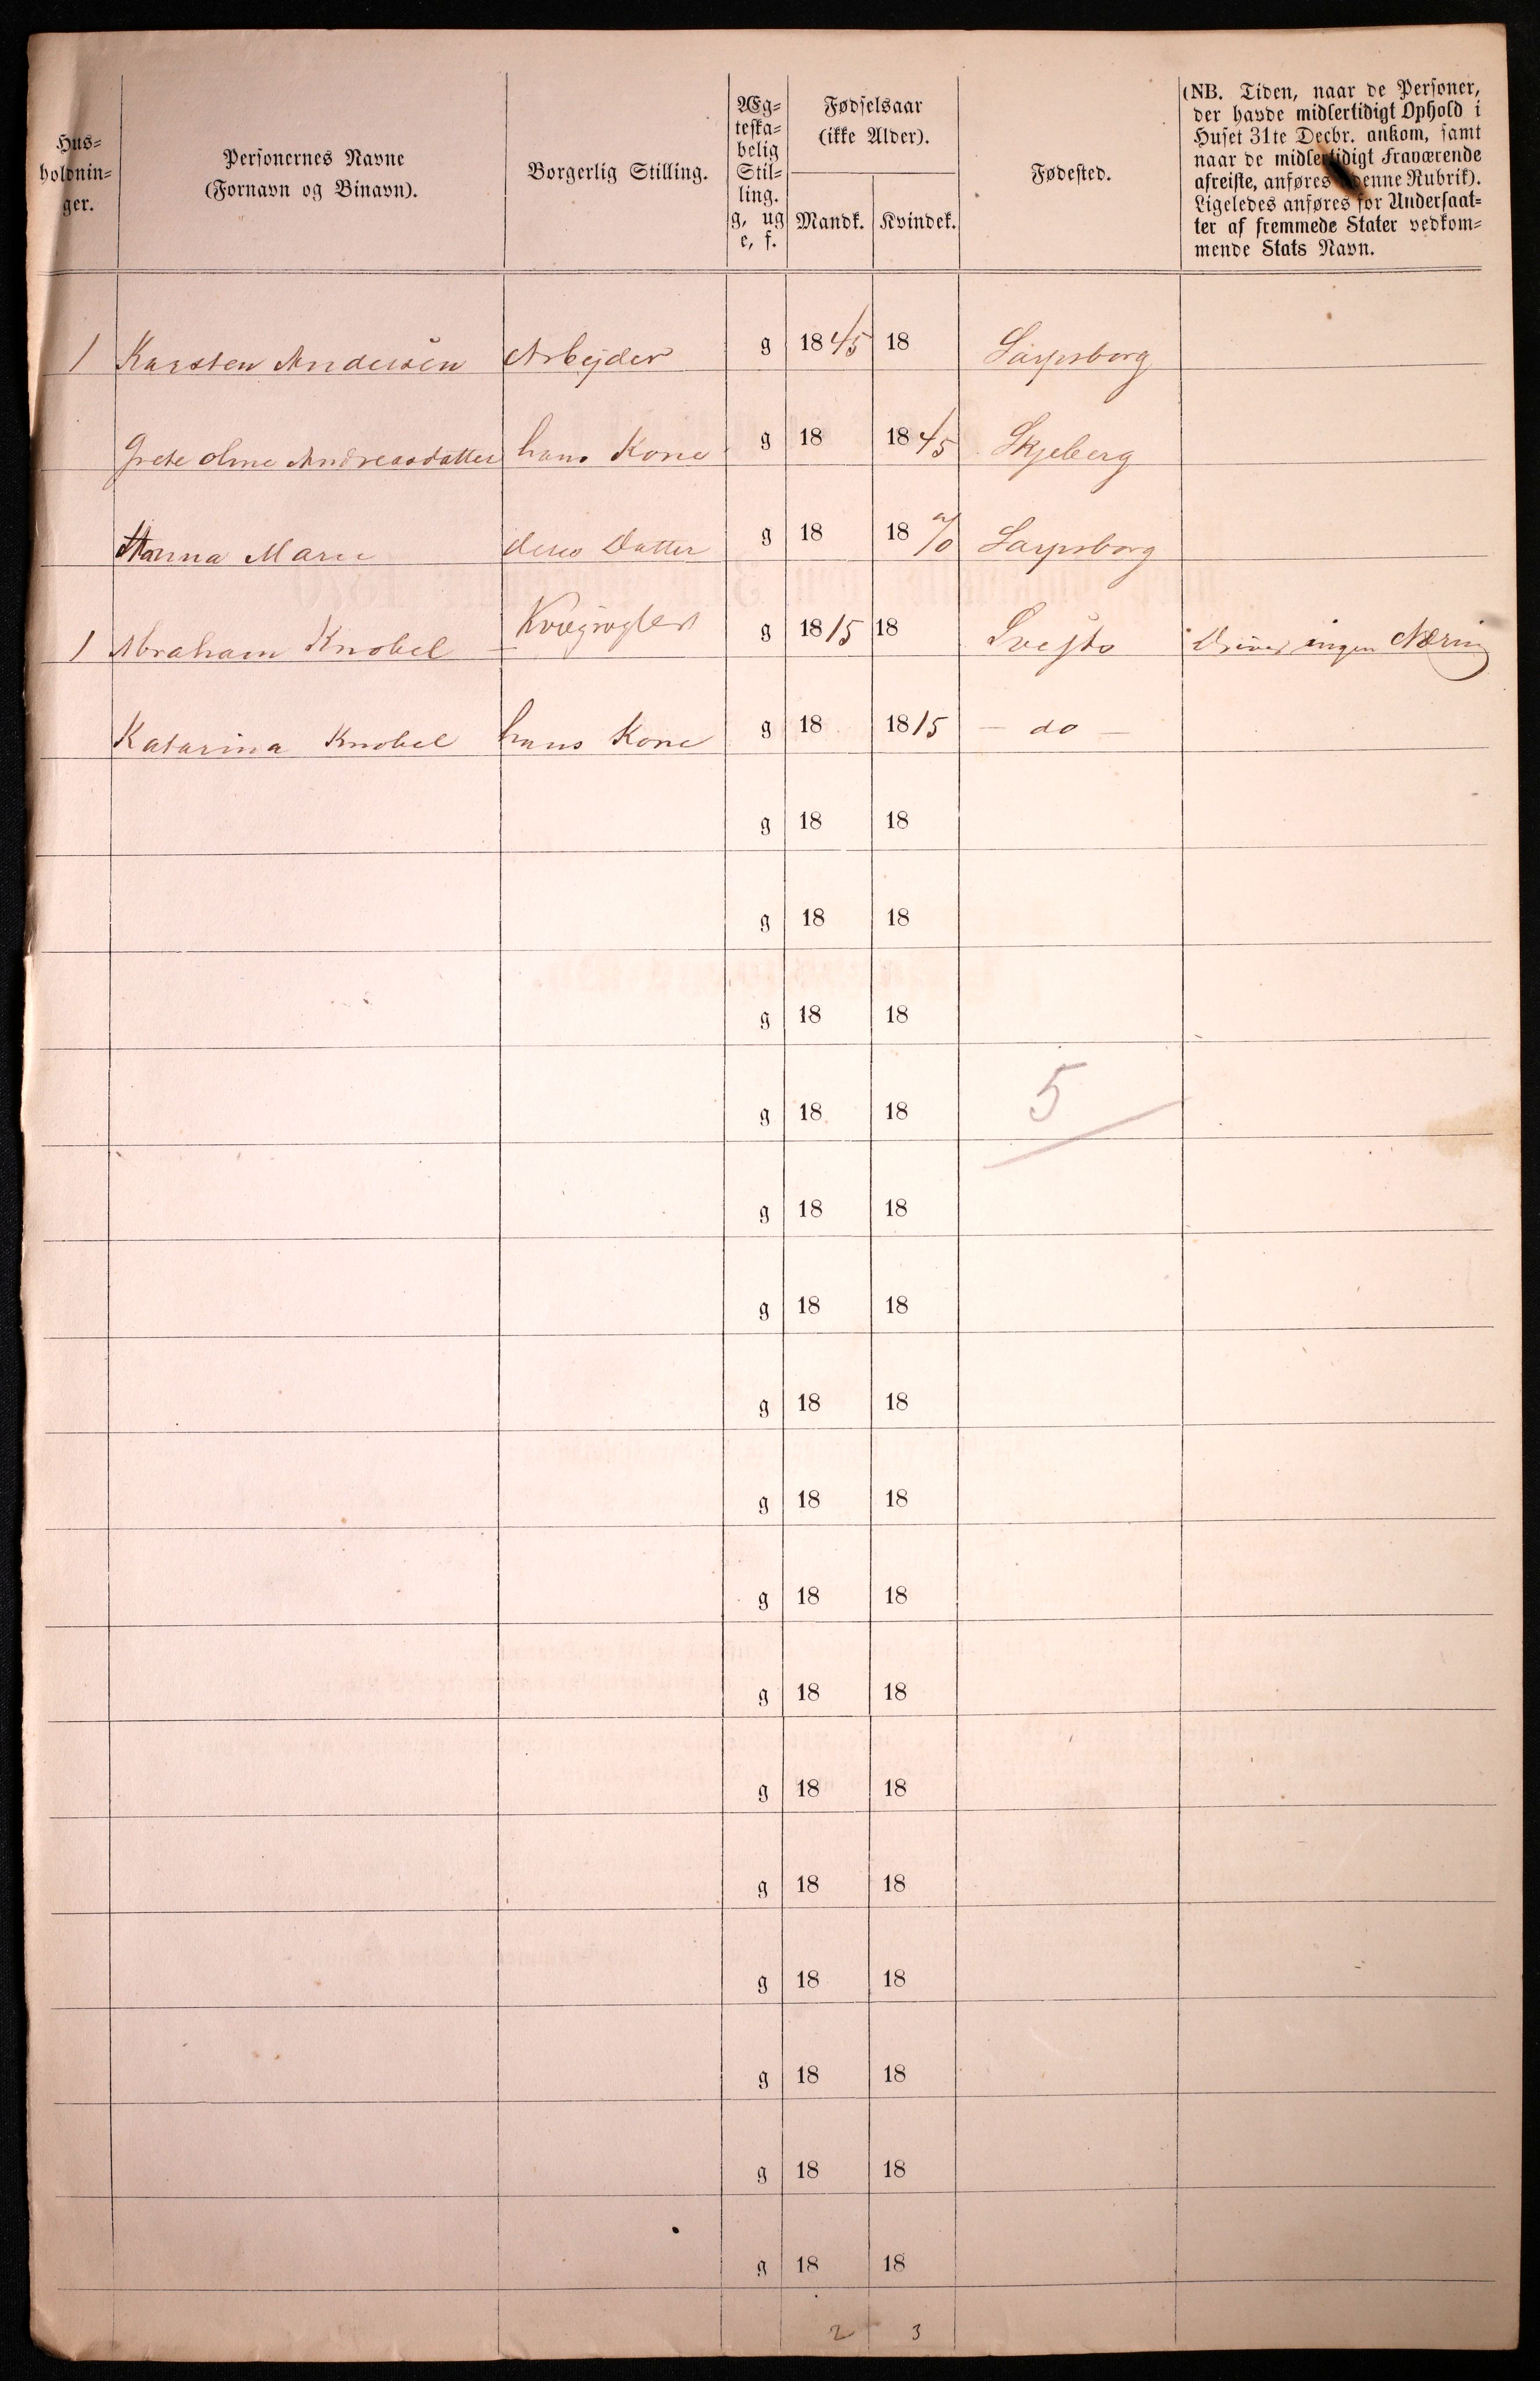 Hus-
holdnin-
ger.
Personernes Navne
(Fornavn og Binavn).
Borgerlig Stilling.
Æg-
teska-
belig
Stil-
ling.
g, ug
e, f.
Fødselsaar
(ikke Alder).
Mandk. Kvindek.
Fødested.
(NB. Tiden, naar de Personer,
der havde midlertidigt Ophold i
Huset 31te Decbr. ankom, samt
naar de midlertidigt Fraværende
afreiste, anføres denne Rubrik).
Ligeledes anføres for Undersaat-
ter af fremmede Stater vedkom-
mende Stats Navn.
1 Karsten Andersen Arbejder g 1845 18 Sarpsborg
Grete Andreasdatter hans Kone g 18 1845 Skjeberg
Hanna Marie deres Datter g 18 18 70 Sarpsborg
1 Abraham Knobel g 1815 18 Driver ingen Næring
Katarina Knobel hans Kone g 18 1815 — do —
g 18 18
g 18 18
g 18 18
g 18 18 5
g 18 18
g 18 18
g 18 18
g 18 18
g 18 18
g 18 18
g 18 18
g 18 18
g 18 18
g 18 18
g 18 18
g 18 18
2 3